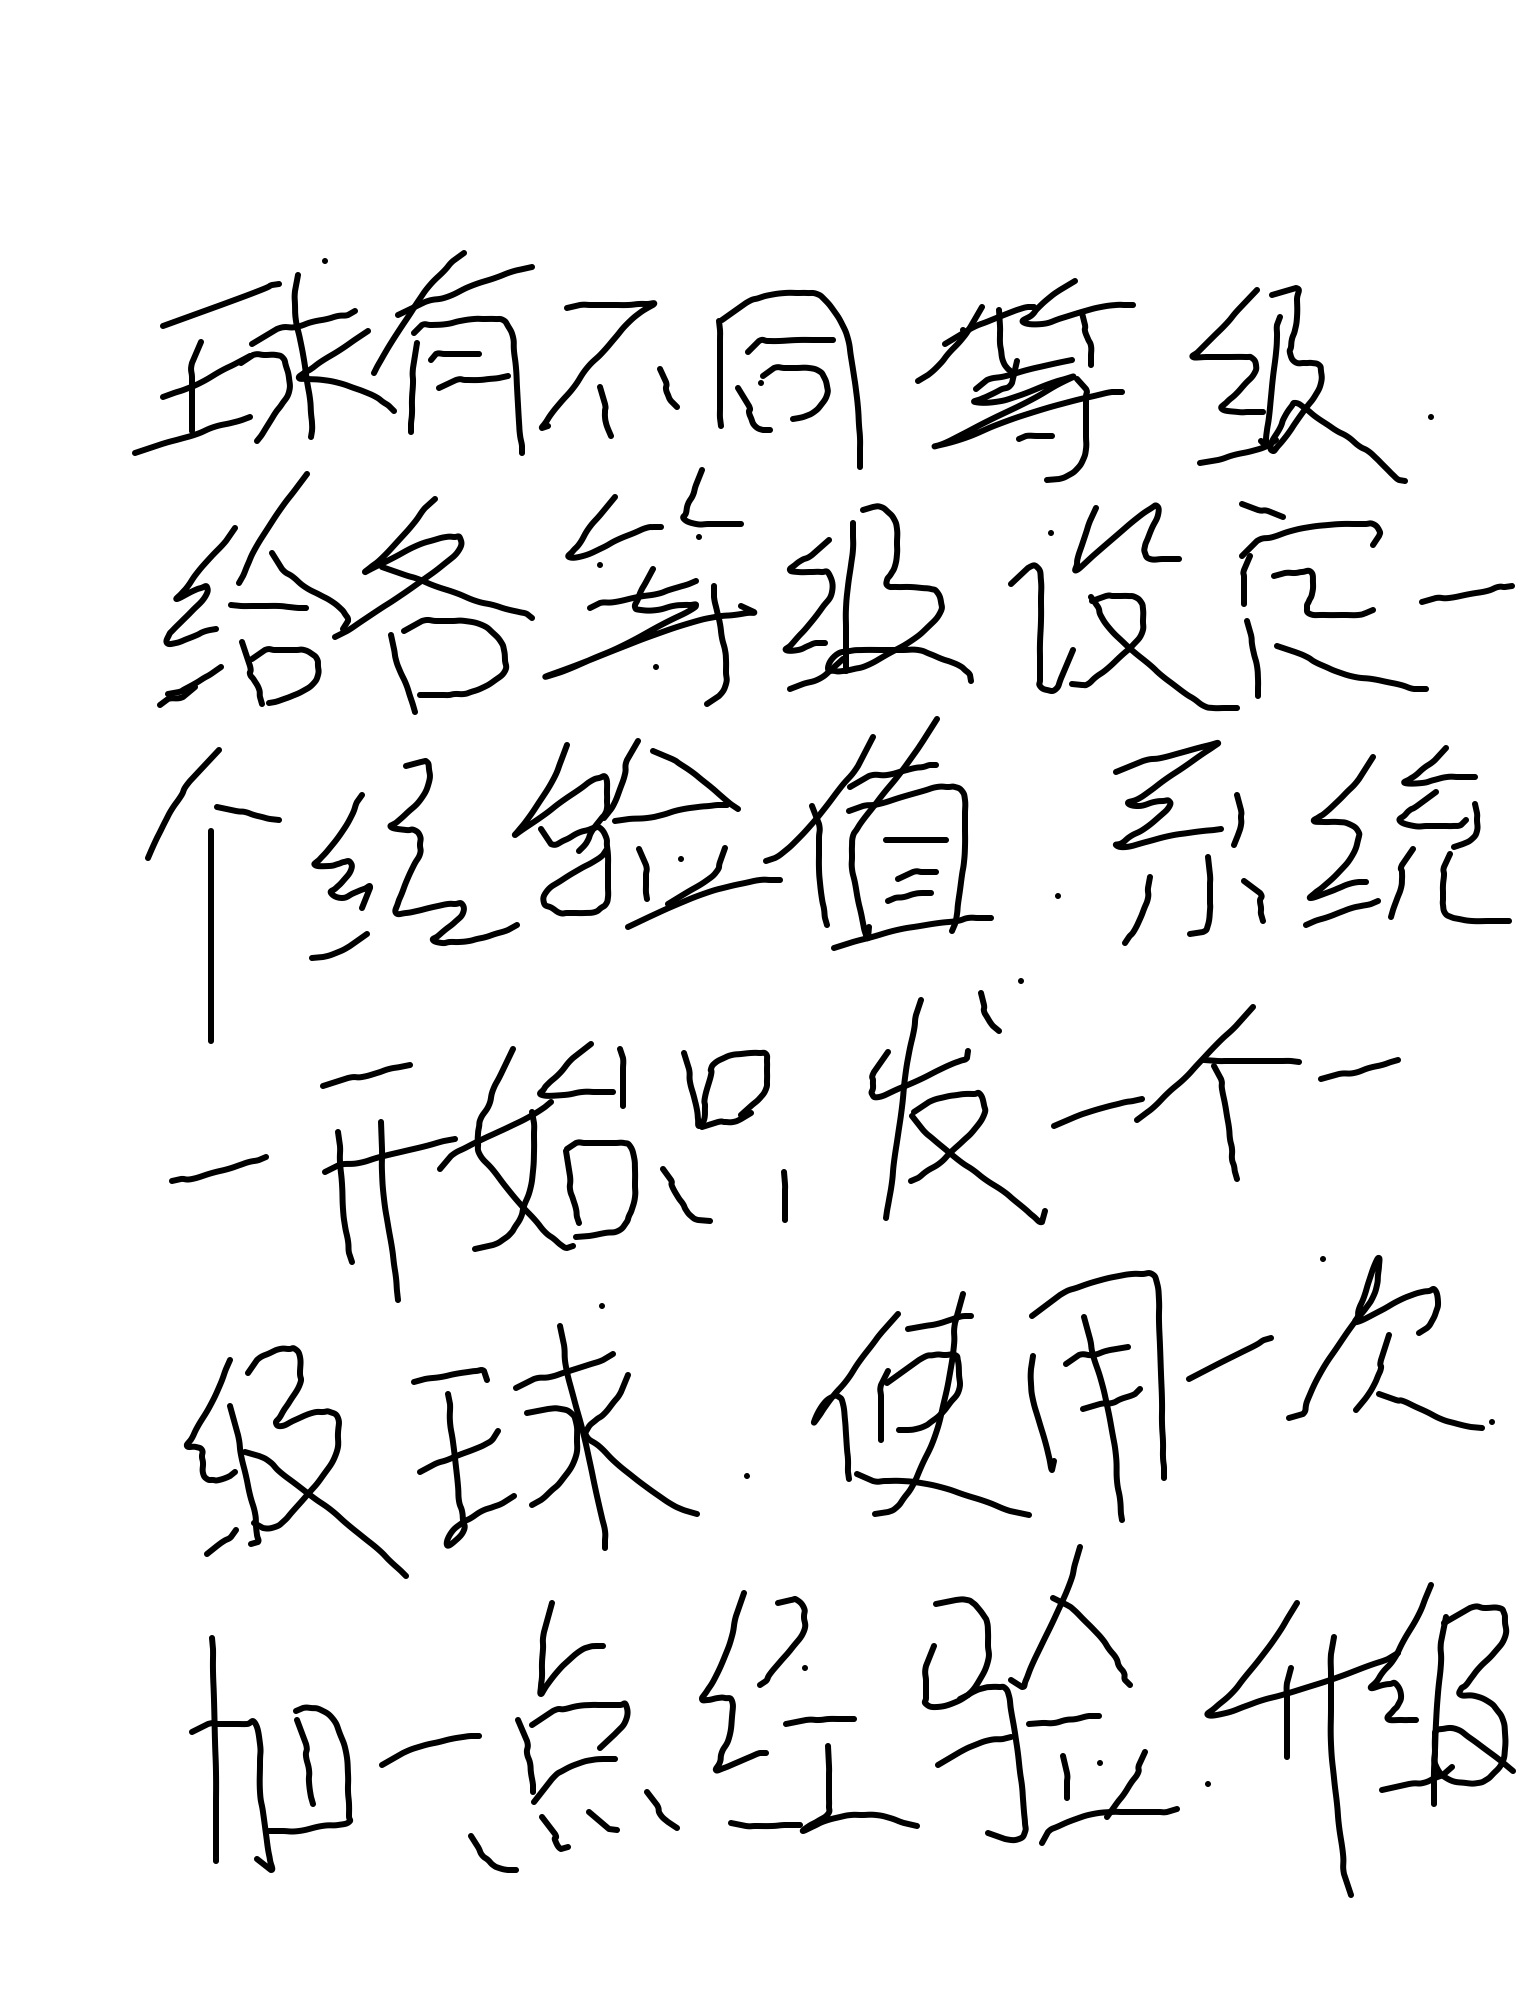 球有不同等级
给各等级设定一
个经验值 系统
一开始只发一个一
级球 使用一次
加一点经验 升级